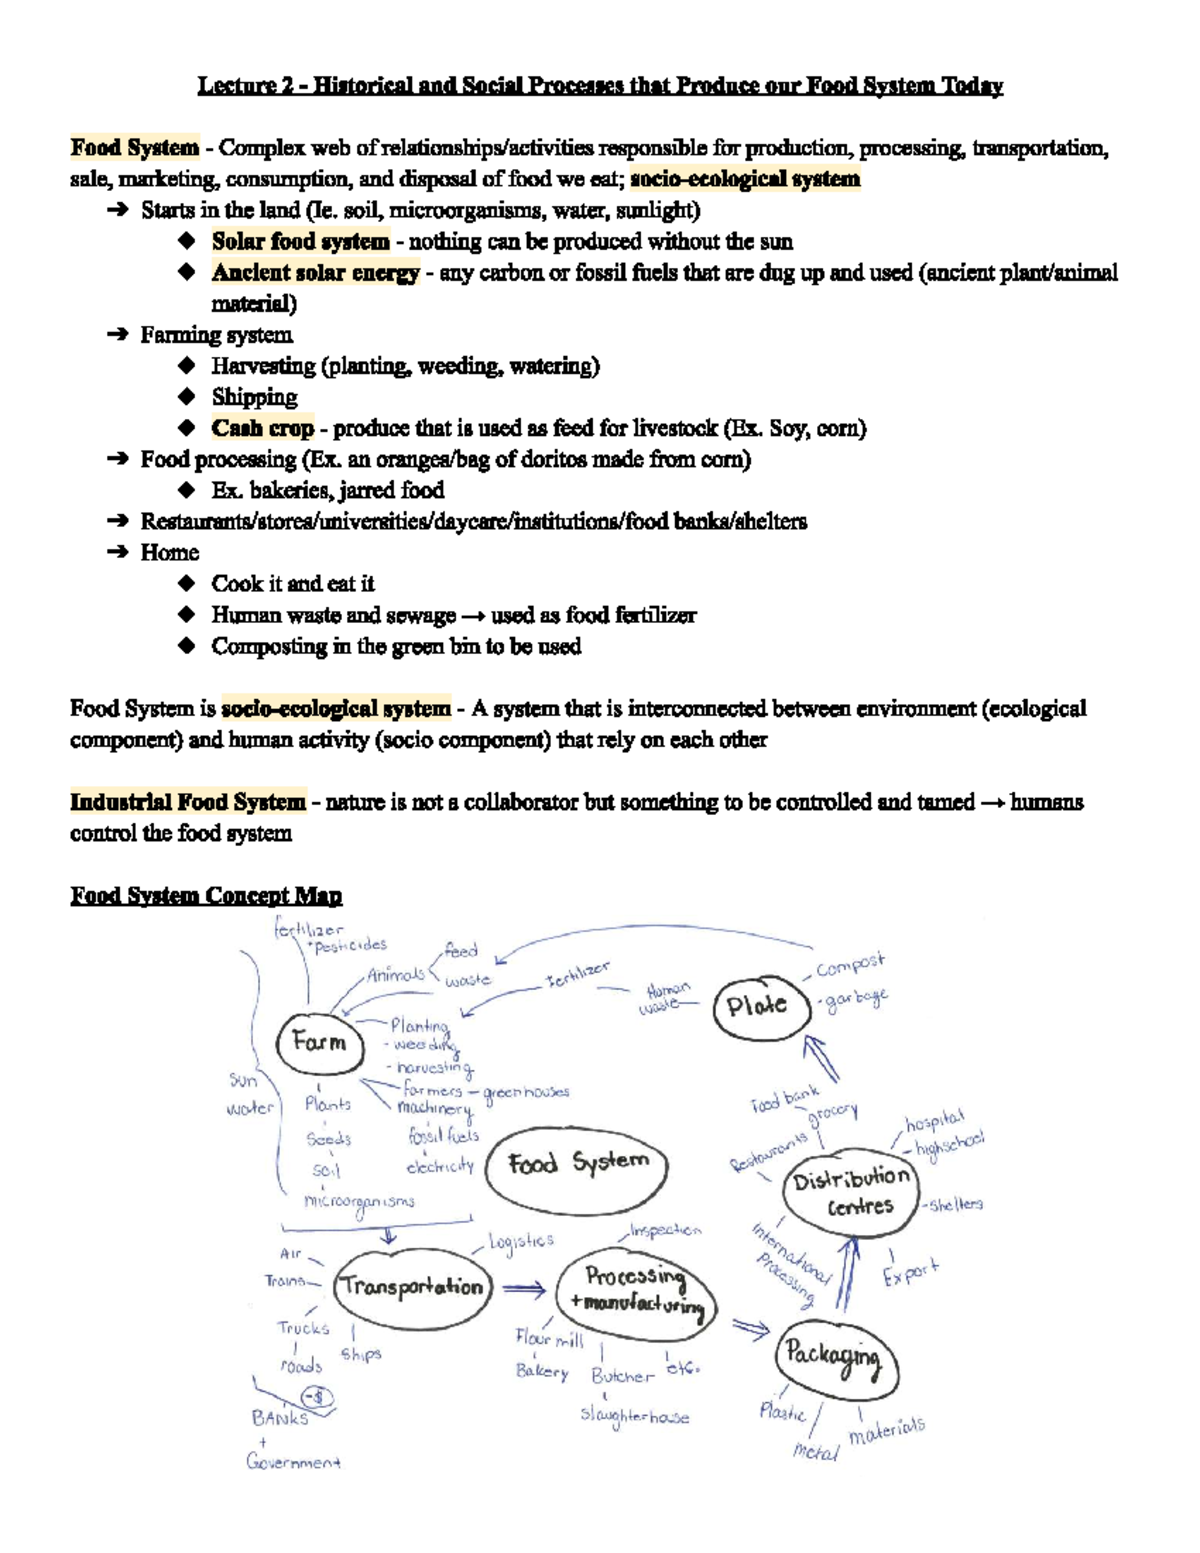 Lecture 2 - Historical and Social Processes that Produce our Food System Today
Food System - Complex web of relationships/activities responsible for production, processing, transportation,
sale, marketing, consumption, and disposal of food we eat; socio-ecological system
➔ Starts in the land (Ie. soil, microorganisms, water, sunlight)
◆ Solar food system - nothing can be produced without the sun
◆ Ancient solar energy - any carbon or fossil fuels that are dug up and used (ancient plant/animal
material)
➔ Farming system
◆ Harvesting (planting, weeding, watering)
◆ Shipping
◆ Cash crop - produce that is used as feed for livestock (Ex. Soy, corn)
➔ Food processing (Ex. an oranges/bag of doritos made from corn)
◆ Ex. bakeries, jarred food
➔ Restaurants/stores/universities/daycare/institutions/food banks/shelters
➔ Home
◆ Cook it and eat it
◆ Human waste and sewage → used as food fertilizer
◆ Composting in the green bin to be used
Food System is socio-ecological system - A system that is interconnected between environment (ecological
component) and human activity (socio component) that rely on each other
Industrial Food System - nature is not a collaborator but something to be controlled and tamed → humans
control the food system
Food System Concept Map
fertilizer
+pesticides
Animals
feed
waste
fertilizer
Human
waste
Plate
Compost
-garbage
Farm
Planting
- weeding
- harvesting
farmers - greenhouses
machinery
fossil fuels
electricity
sun
water
Plants
Seeds
soil
microorganisms
Food System
Food bank
grocery
Restaurants
hospital
- highschool
Distribution
Centres
-shelters
International
Processing
Export
Air
Trains
Transportation
Logistics
Trucks
roads
ships
-$
BANKS
+
Government
Inspection
Processing
+manufacturing
Flour mill
Bakery
Butcher
slaughterhouse
etc.
Packaging
Plastic
metal
materials